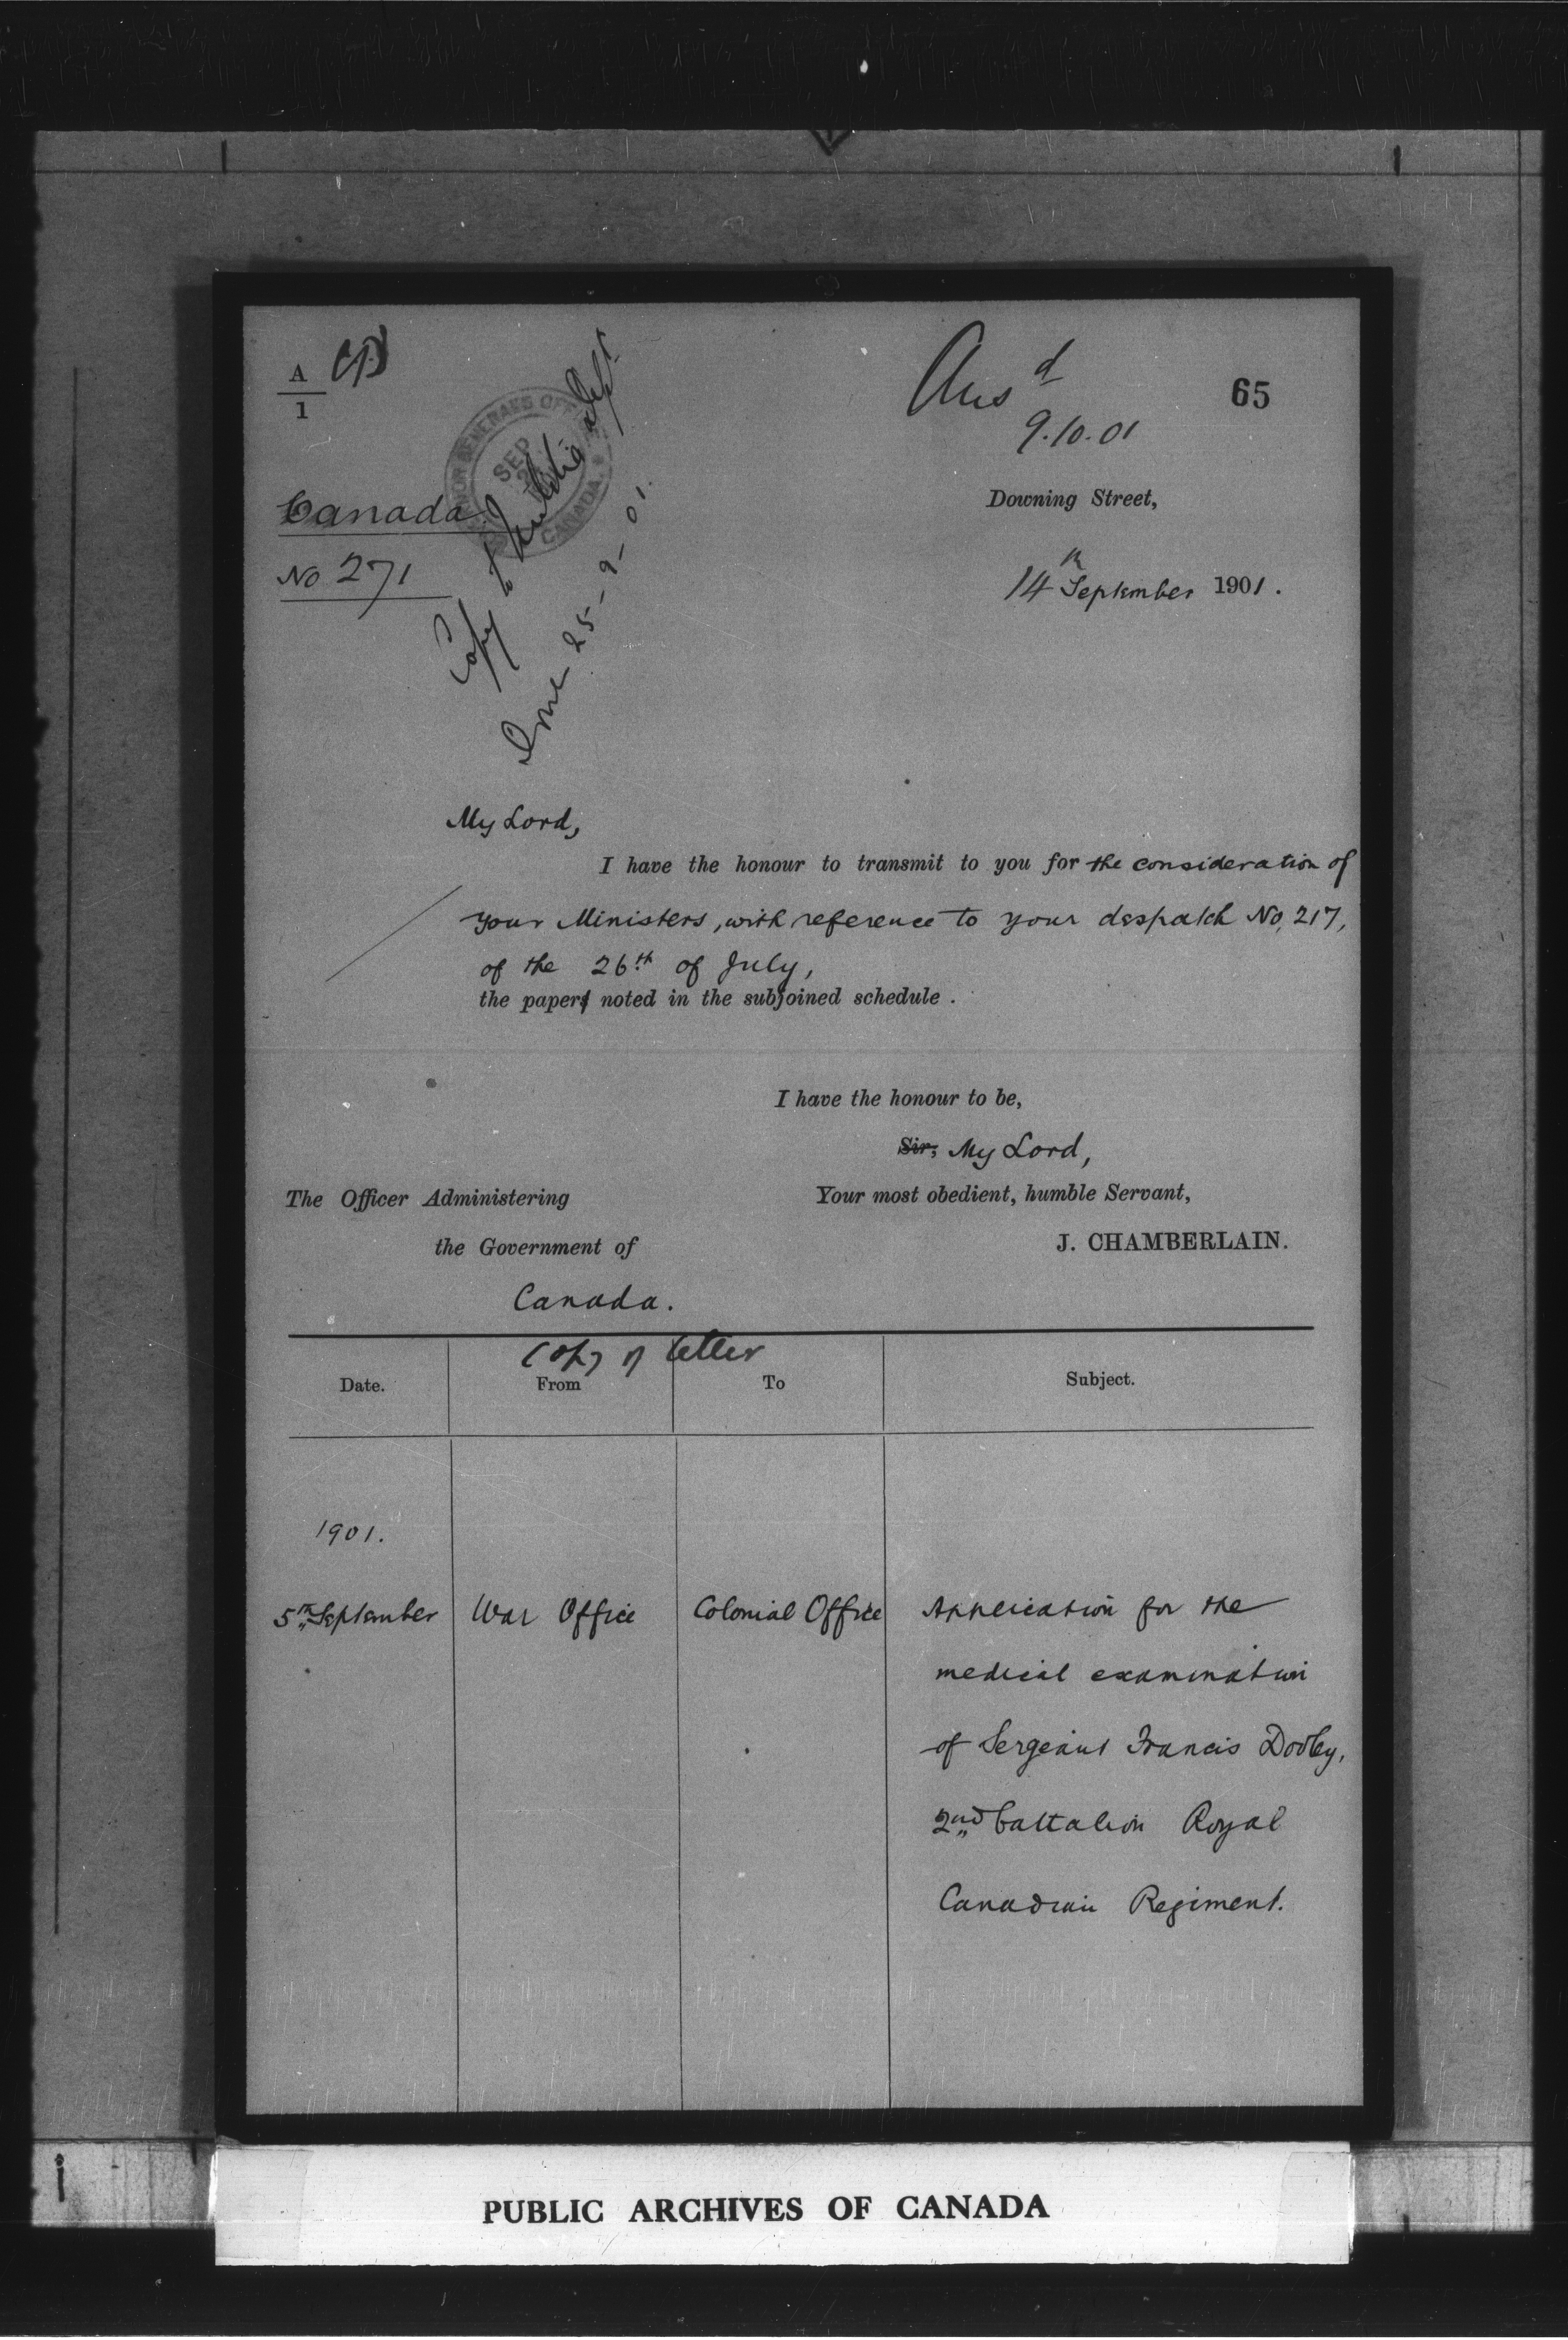 A
1
Ansd
9.10.01
65
GOVERNOR GENERAL'S OFFICE
SEP
CANADA
Copy to Militia Dept.
25-9-01
Canada
No 271
Downing Street,
14th September 1901.
My Lord,
I have the honour to transmit to you for the consideration of
your Ministers, with reference to your despatch No, 217,
of the 26th of July,
the paper noted in the subjoined schedule.
I have the honour to be,
Sir, My Lord,
Your most obedient, humble Servant,
J. CHAMBERLAIN.
The Officer Administering
the Government of
Canada.
Copy of letter
Date. From To Subject.
1901.
5th September War Office Colonial Office Application for the
medical examination
of Sergeant Francis Dooley,
2nd battalion Royal
Canadian Regiment.
PUBLIC ARCHIVES OF CANADA